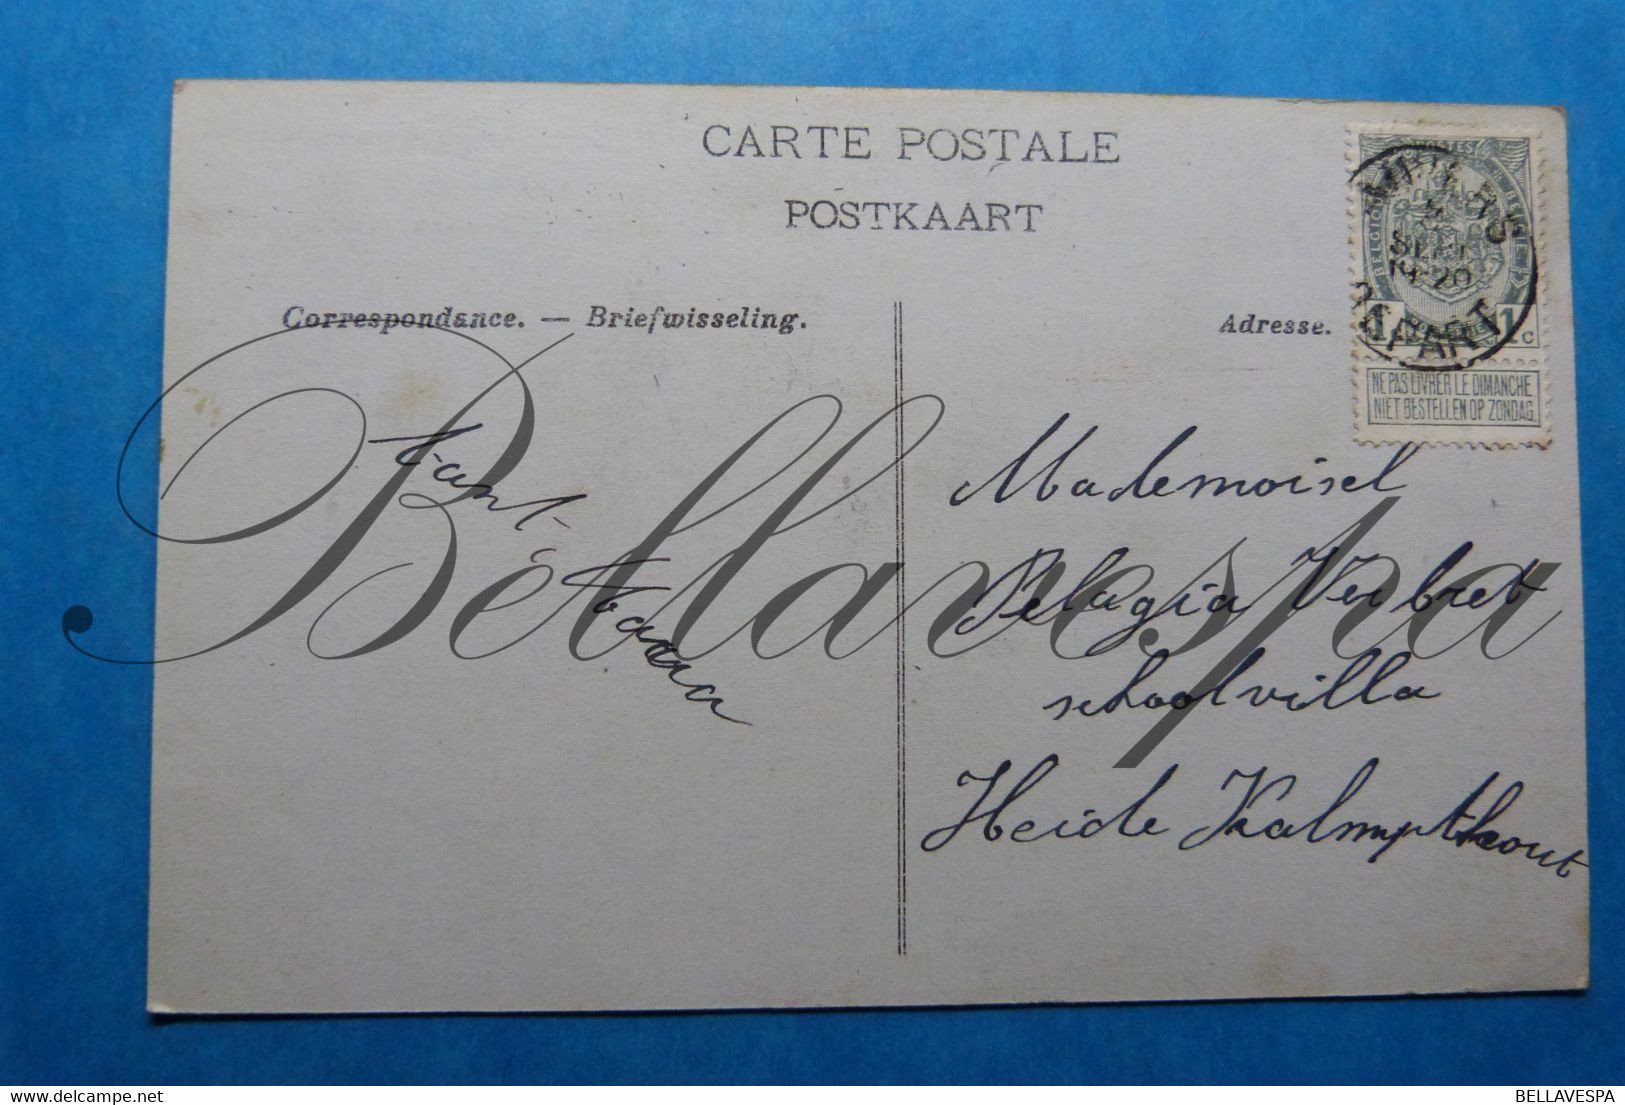 CARTE POSTALE
POSTKAART
Correspondance. — Briefwisseling.
Adresse.
BELGIQUE
1 1c
DÉPART
NE PAS LIVRER LE DIMANCHE
NIET BESTELLEN OP ZONDAG
Tant
Mademoisel
Pelagia Verbret
schoolvilla
Heide Kalmpthout
Bellavespa
BELLAVESPA